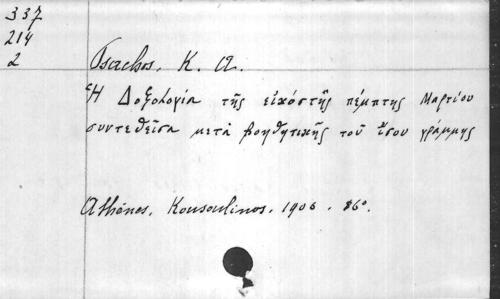 337
214
2
Tsachos, K. A.
Ἡ Δοξολογία τῆς εἰκόστῆς πέμπτης Μαρτίου
συντεθεῖσα μετὰ βοηθητικῆς τοῦ ἴσου γράμμης
Athènes, Kousoulinos, 1906. 86°.